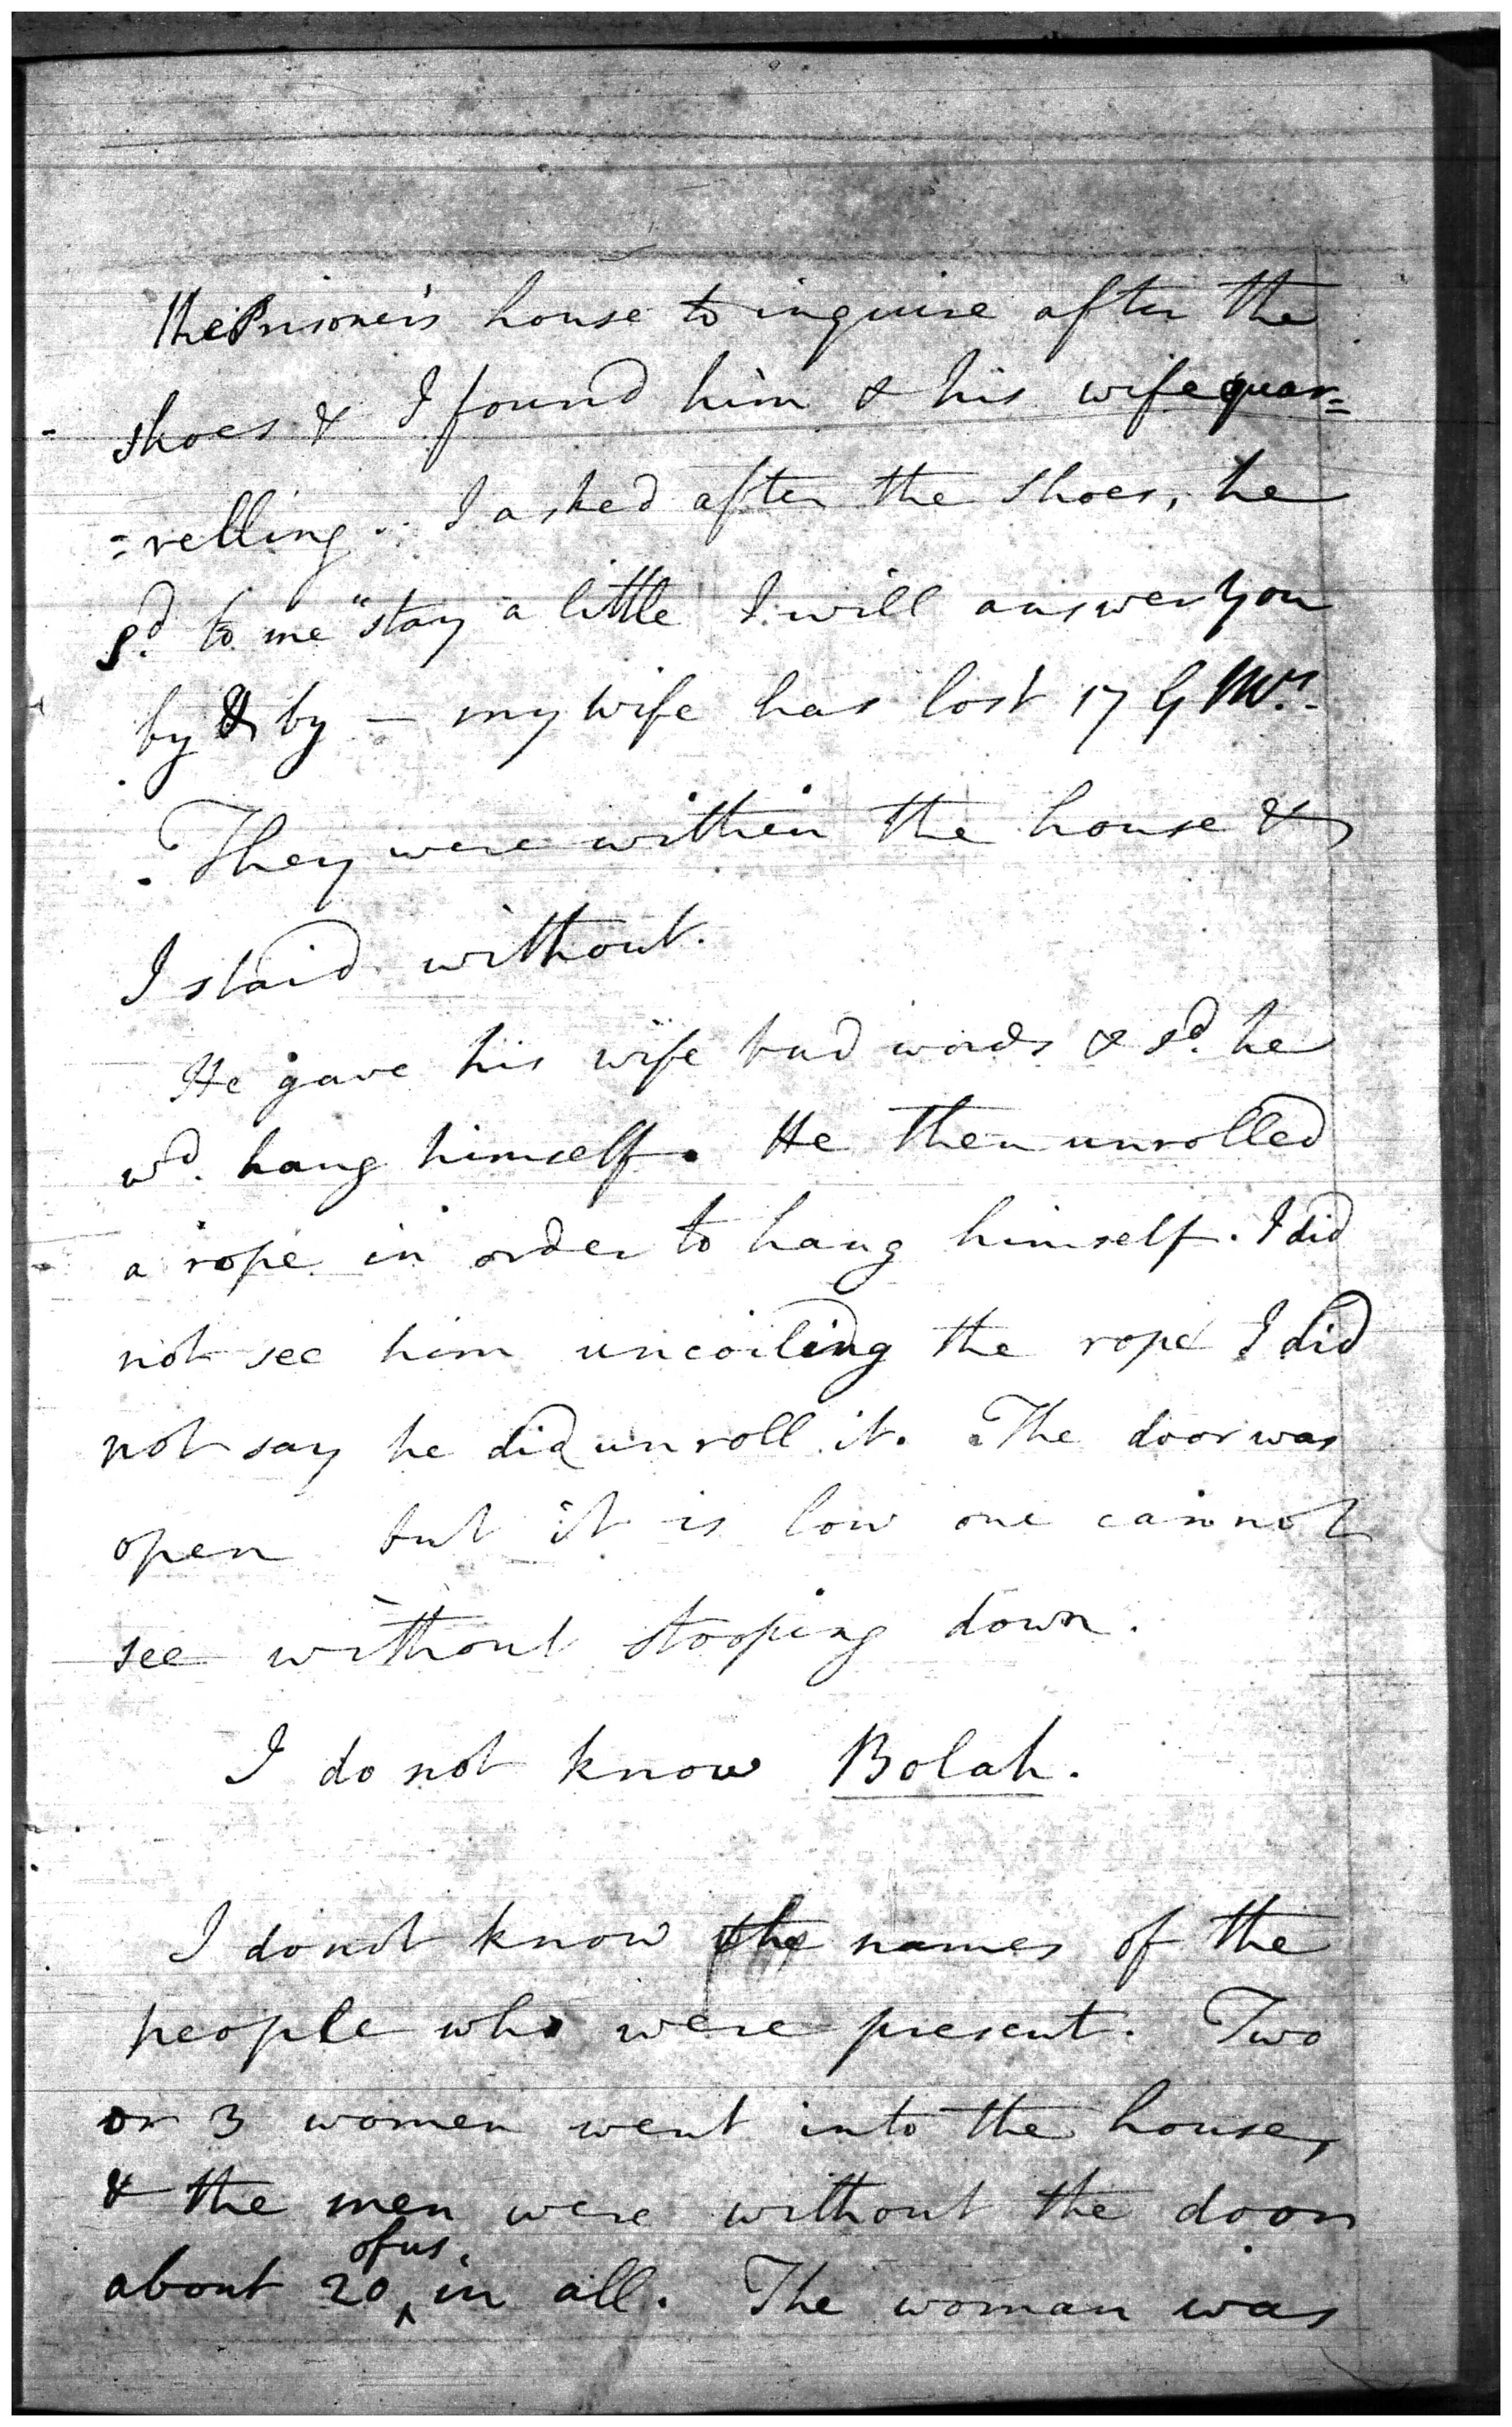 the Prisoner's house to inquire after the
shoes & I found him & his wife quar=
=relling. I asked after the shoes, he
sd. to me "stay a little I will answer you
by & by — my wife has lost 17 G Mrs.
They were within the house &
I staid without.
He gave his wife bad words & sd. he
wd. hang himself. He then unrolled
a rope in order to hang himself. I did
not see him uncoiling the rope I did
not say he did unroll it. The door was
open but it is low one cannot
see without stooping down.
I do not know Bolah.
I do not know the names of the
people who were present. Two
or 3 women went into the house,
& the men were without the door
about 20 of us in all. The woman was